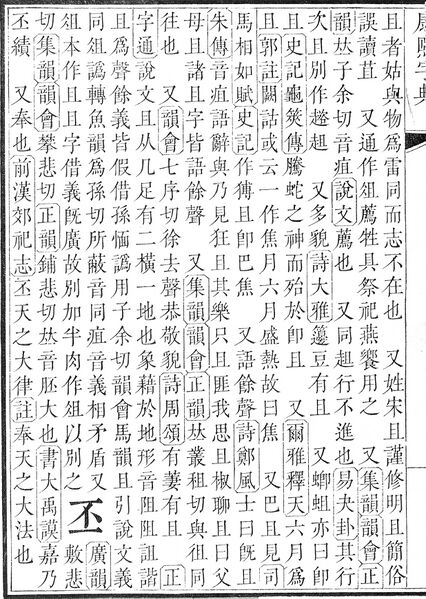 康熙字典
且者姑與物爲雷同而志不在也 又姓宋且謹修明且簡俗
誤讀苴 又通作俎薦牲具祭祀燕饗用之 又集韻韻會正
韻𠀤子余切音疽說文薦也 又同趄行不進也易夬卦其行
次且別作趑趄 又多貌詩大雅籩豆有且 又蝍蛆亦曰卽
且史記龜筴傳騰蛇之神而殆於卽且 又爾雅釋天六月爲
且郭註闕詁或云一作焦月六月盛熱故曰焦 又巴且見司
馬相如賦史記作猼且卽巴焦 又語餘聲詩鄭風士曰旣且
朱傳音疽語辭與乃見狂且其樂只且匪我思且椒聊且曰父
母且諸且字皆語餘聲 又集韻韻會正韻𠀤叢租切與徂同
往也 又韻會七序切徐去聲恭敬貌詩周頌有萋有且 正
字通說文且从几足有二橫一地也象藉於地形音阻阻詛諧
且爲聲餘義皆假借孫愐譌用子余切韻會馬韻且引說文義
同俎譌轉魚韻爲孫切所蔽音同疽音義相矛盾又
俎本作且且字借義旣廣故別加半肉作俎以別之
丕
廣韻
敷悲
切集韻韻會攀悲切正韻鋪悲切𠀤音胚大也書大禹謨嘉乃
丕績 又奉也前漢郊祀志丕天之大律註奉天之大法也